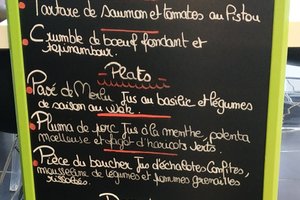 Tartare de saumon et tomates au Pistou
Crumble de boeuf fondant et
topinambour.
Plats
Pavé de Merlu Jus au basilic et légumes
de saison au wok.
Pluma de porc Jus à la menthe, polenta
moelleuse et fagot d'haricots verts.
Pièce du boucher Jus d'échalotes Confites,
mousseline de légumes et pommes grenailles
rissolées.